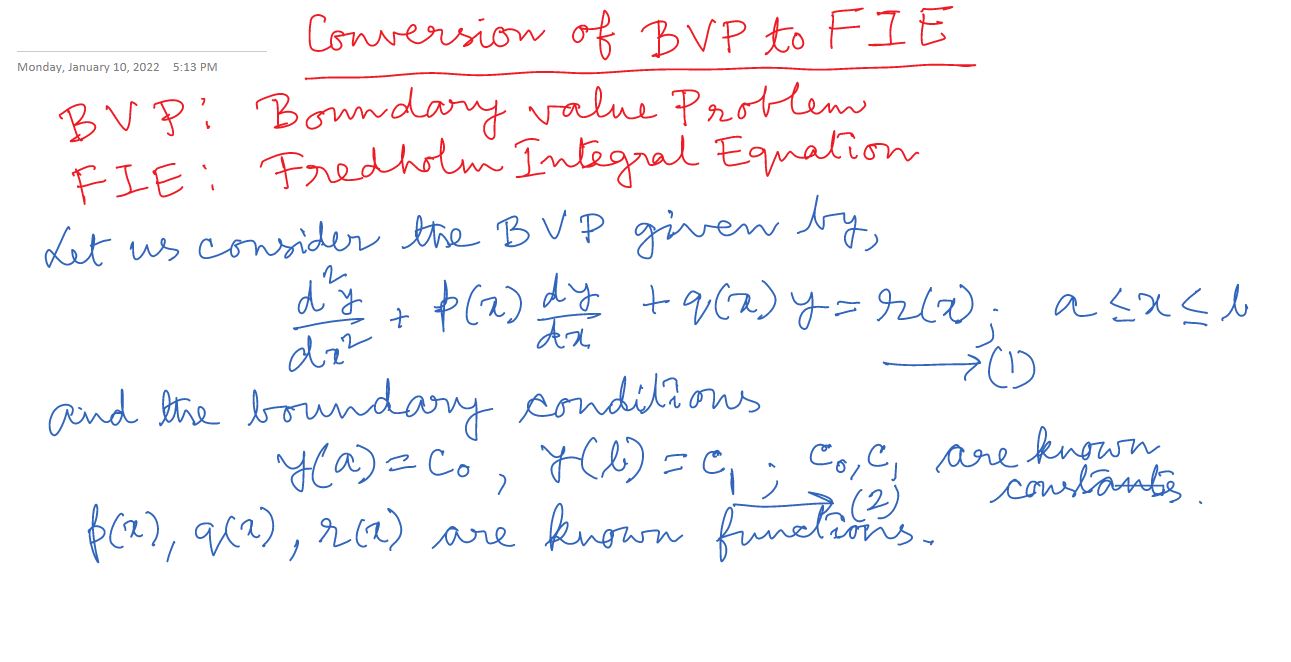 Conversion of BVP to FIE
Monday, January 10, 2022 5:13 PM
BVP: Boundary value Problem
FIE: Fredholm Integral Equation
Let us consider the BVP given by,
d²y/dx² + p(x) dy/dx + q(x) y = r(x); a ≤ x ≤ b
→ (1)
and the boundary conditions
y(a) = c₀, y(b) = c₁; c₀, c₁ are known constants.
→ (2)
p(x), q(x), r(x) are known functions.